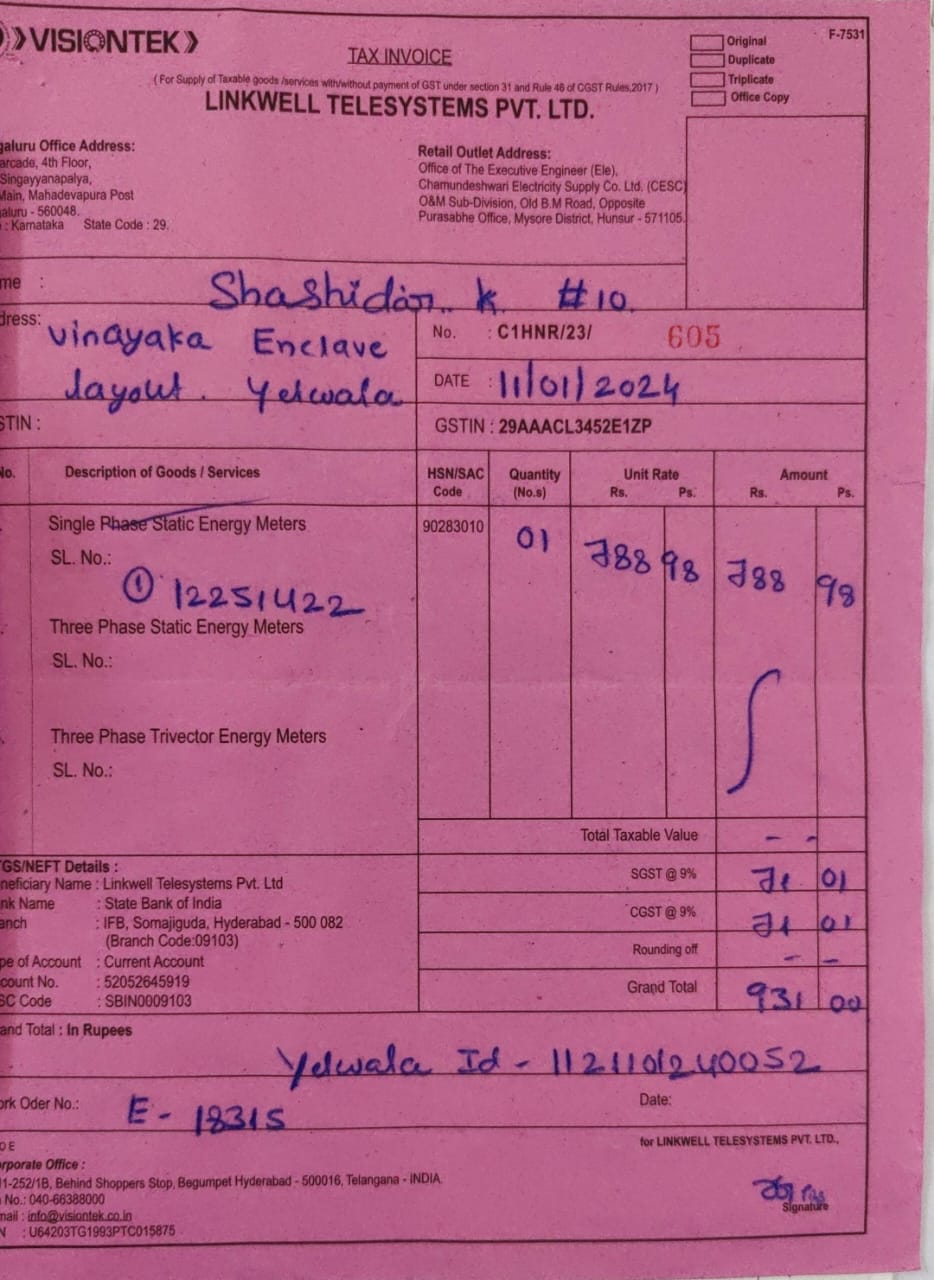 VISIONTEK
TAX INVOICE
Original
Duplicate
Triplicate
Office Copy
F-7531
( For Supply of Taxable goods /services with/without payment of GST under section 31 and Rule 46 of CGST Rules,2017 )
LINKWELL TELESYSTEMS PVT. LTD.
galuru Office Address:
arcade, 4th Floor,
Singayyanapalya,
Main, Mahadevapura Post
galuru - 560048.
: Karnataka State Code : 29.
Retail Outlet Address:
Office of The Executive Engineer (Ele),
Chamundeshwari Electricity Supply Co. Ltd. (CESC)
O&M Sub-Division, Old B.M Road, Opposite
Purasabhe Office, Mysore District, Hunsur - 571105.
me : Shashidar K #10
dress: Vinayaka Enclave
layout. Yelwala
No. : C1HNR/23/ 605
DATE : 11/01/2024
STIN :
GSTIN : 29AAACL3452E1ZP
No. Description of Goods / Services HSN/SAC Code Quantity (No.s) Unit Rate Rs. Ps. Amount Rs. Ps.
Single Phase Static Energy Meters 90283010 01 788 98 788 98
SL. No.:
① 12251422
Three Phase Static Energy Meters
SL. No.:
Three Phase Trivector Energy Meters
SL. No.:
Total Taxable Value - -
SGST @ 9% 71 01
CGST @ 9% 71 01
Rounding off - -
Grand Total 931 00
TGS/NEFT Details :
neficiary Name : Linkwell Telesystems Pvt. Ltd
nk Name : State Bank of India
anch : IFB, Somajiguda, Hyderabad - 500 082
(Branch Code:09103)
pe of Account : Current Account
count No. : 52052645919
SC Code : SBIN0009103
and Total : In Rupees
Yelwala Id - 1121101240052
ork Oder No.: E - 18315
Date:
O E
for LINKWELL TELESYSTEMS PVT. LTD.,
rporate Office :
11-252/1B, Behind Shoppers Stop, Begumpet Hyderabad - 500016, Telangana - INDIA.
No.: 040-66388000
mail : info@visiontek.co.in
N : U64203TG1993PTC015875
Signature